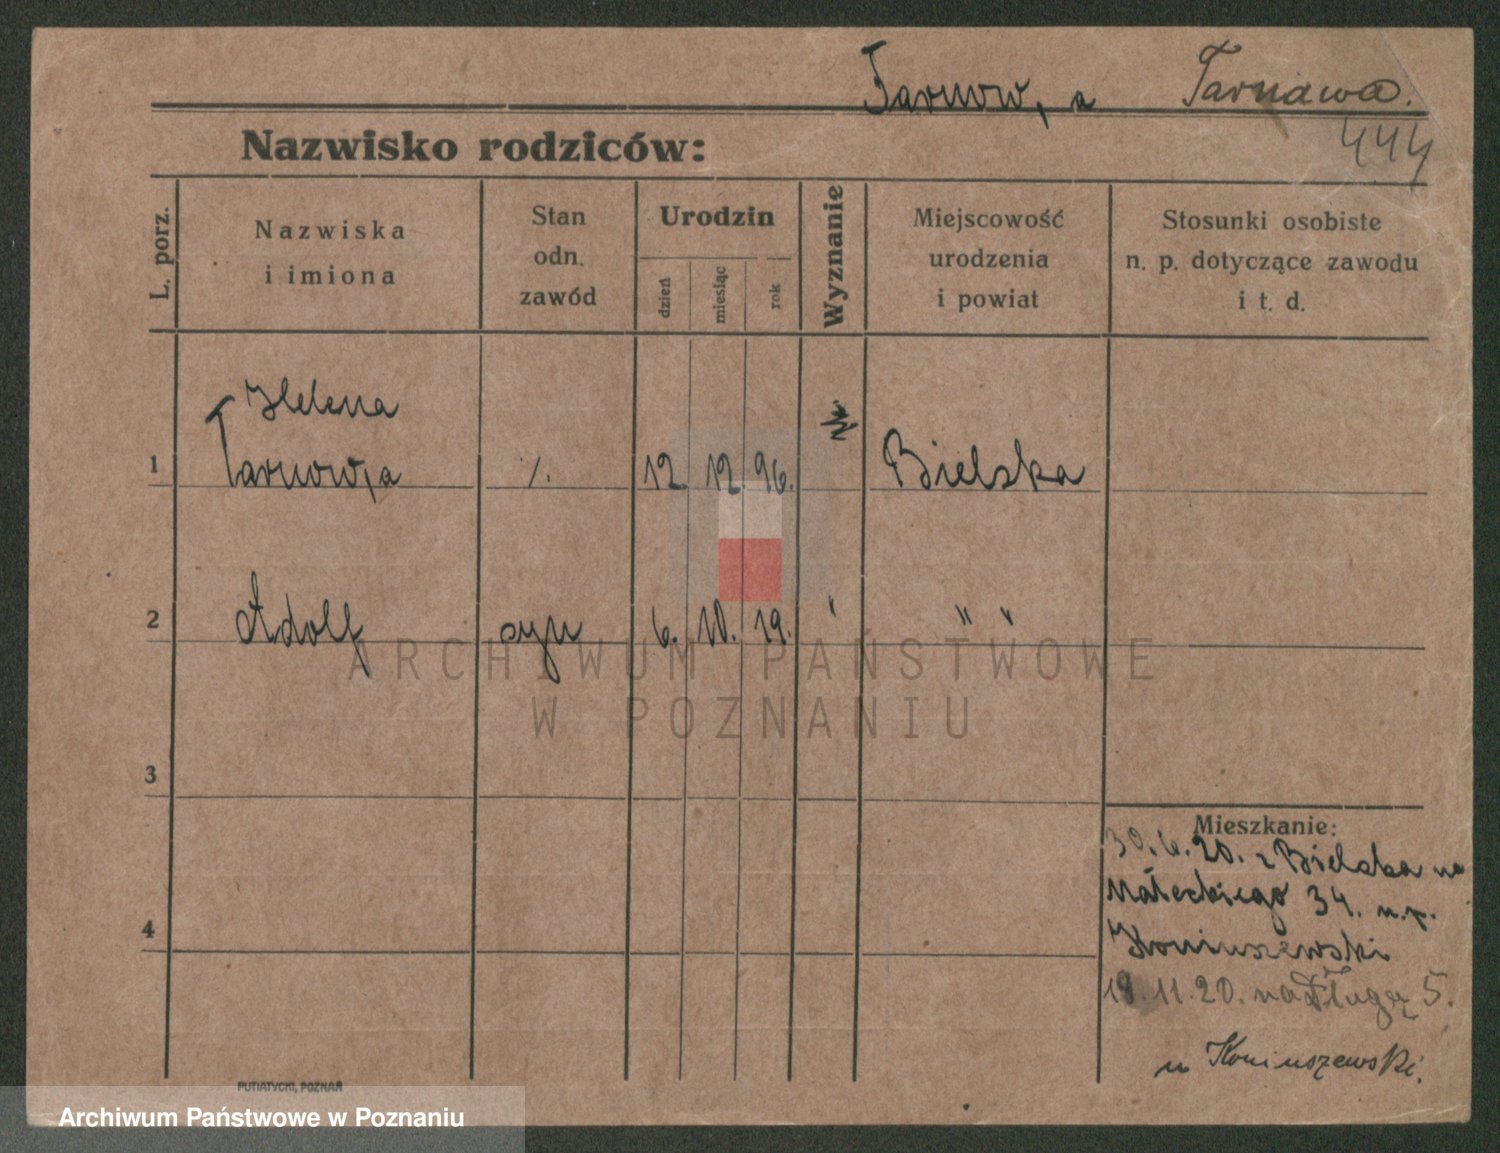 Tarnow, a Tarnawa.
444
Nazwisko rodziców:
L. porz.
Nazwiska
i imiona
Stan
odn.
zawód
Urodzin
dzień
miesiąc
rok
Wyznanie
Miejscowość
urodzenia
i powiat
Stosunki osobiste
n. p. dotyczące zawodu
i t. d.
Helena
1 Tarnow,a /. 12. 12. 96. Bielska
2 Adolf syn 6. 10. 19. " " "
3
4
Mieszkanie:
30.6.20. z Bielska na
Małeckiego 34. u.p.
Koniuszewski
18.11.20. na Długą 5.
u Koniuszewski.
PUTIATYCKI, POZNAŃ
ARCHIWUM PAŃSTWOWE
W POZNANIU
Archiwum Państwowe w Poznaniu